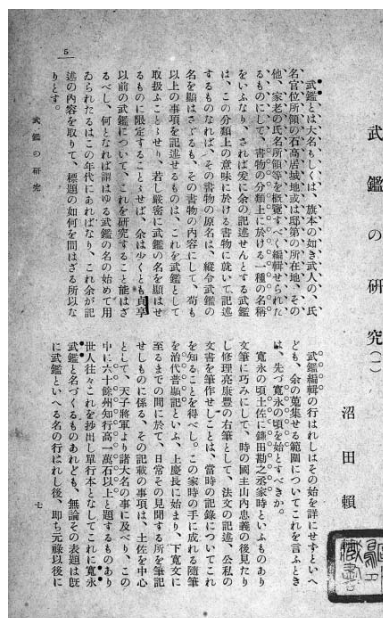 武鑑の研究(一)
沼田頼
武鑑とは大名もしくは、旗本の如き武人の、氏
名官位所領の石高居城地或は邸第の所在地、その
他、家老の氏名所領等を概覽すべく編輯せられた
るものにして、書物の分類上に於ける一種の名稱
をいふなり、されば爰に余の記述せんとする武鑑
は、この分類上の意味に於ける書物に就いて記述
するものなれば、その書物の原名は、縱令武鑑の
名を顯はさざるも、その書物の内容にして、苟も
以上の事項を記述せるものは、これを武鑑として
取扱ふことゝせり、若し嚴密に武鑑の名を顯はせ
るものに限定することゝせば、余は少くとも貞享
以前の武鑑について、これを研究すること能はざ
るべし、何となれば謂はゆる武鑑の名の始めて用
ゐられたるはこの年代にあればなり、これ余が記
述の内容を取りて、標題の如何を問はざる所以な
りとす。
武鑑編輯の行はれしはその始を詳にせずといへ
ども、余の蒐集せる範圍についてこれを言ふとき
は、先づ寛永の頃を始とすべきか。
寛永の頃土佐に鎌田勘之丞家時といふものあり
文筆に巧みにして、時の國主山内忠義の後見たり
し修理亮康豊の右筆として、法文の記述、公私の
文書を筆作せしことは、當時の記録についてこれ
を知ることを得べし。この家時の手に成れる隨筆
を治代普顯記といふ、上慶長に始まり、下寛文に
至るまでの間に於て、日常その見聞する所を筆記
せしものに係る、その記載の事項は、土佐を中心
として、天子將軍より諸大名の事に及べり、この
中に六十餘州知行高一萬石以上と題するものあり
世人往々これを抄出し單行本となしてこれに寛永
武鑑と名づくるものあれども、無論その表題は旣
に武鑑といへる名の行はれし後、即ち元禄以後に
武鑑の研究
七
5